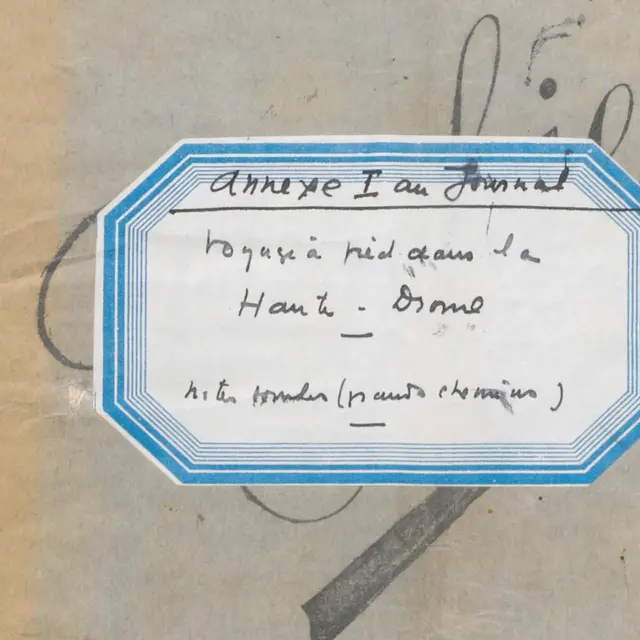 Annexe I au Journal
Voyage à pied dans la
Haute - Drome
notes (grands chemins)